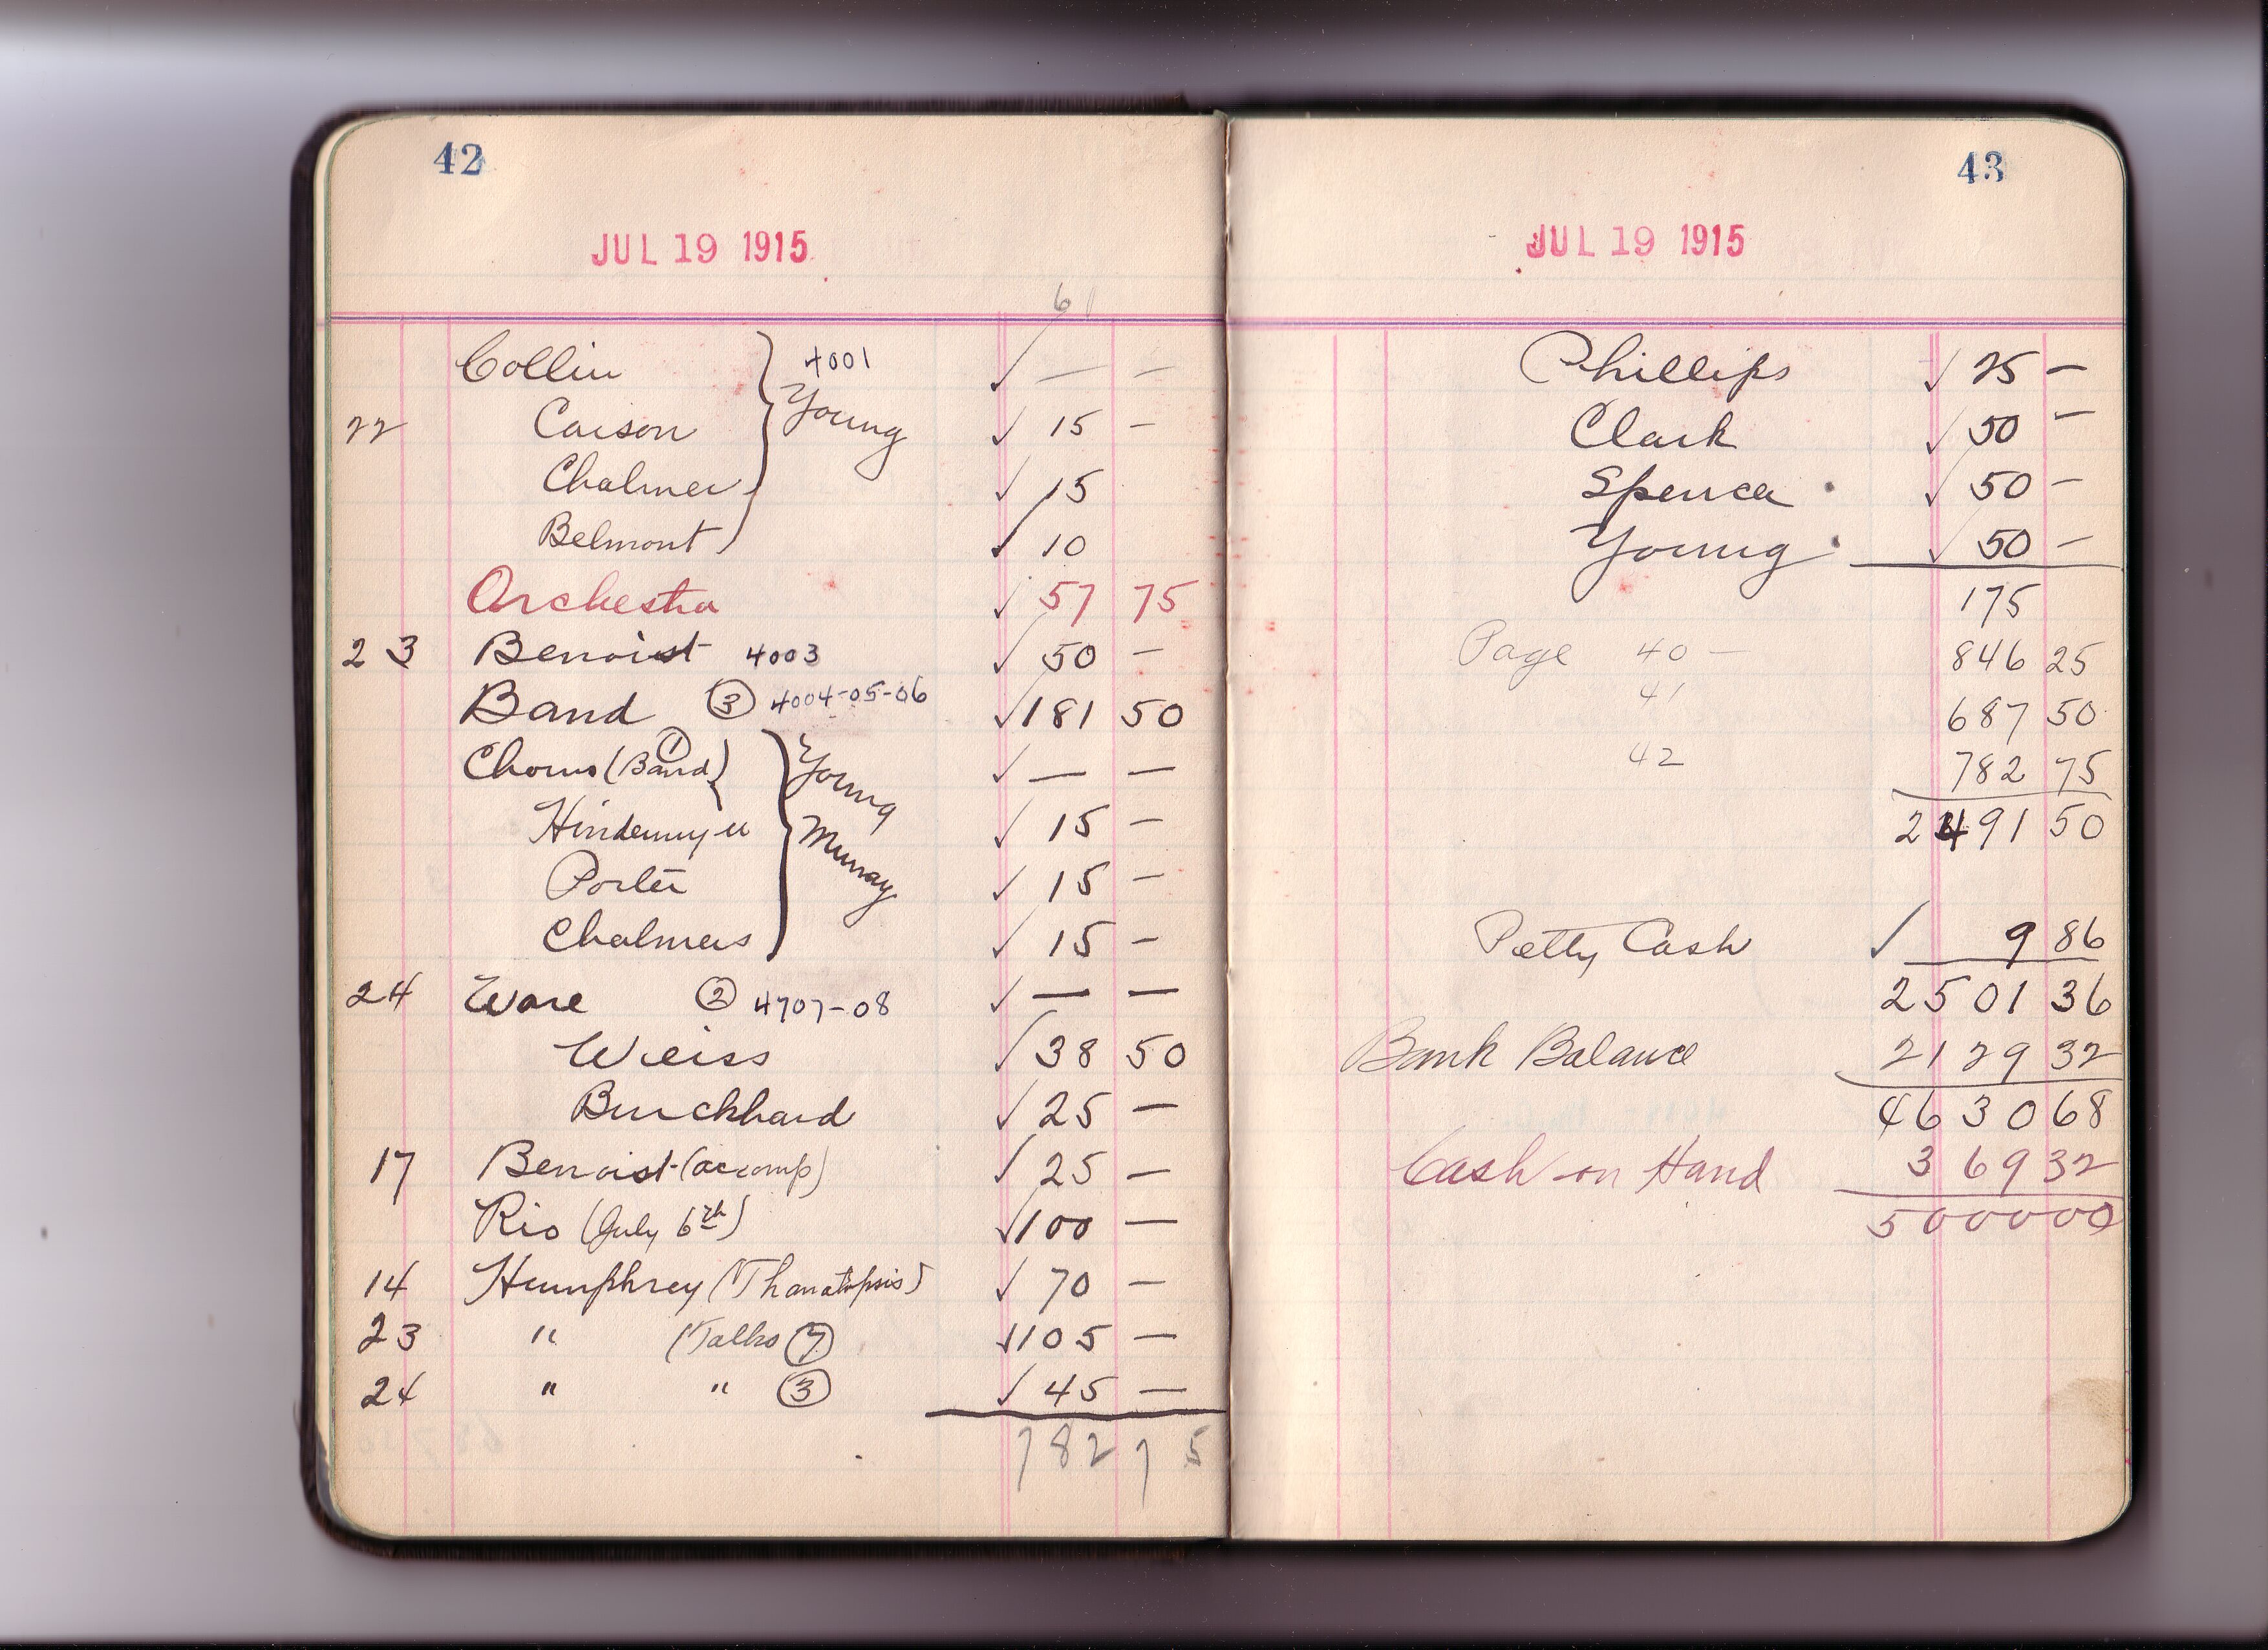 42
JUL 19 1915
6
Collin 4001 ✓ — —
22 Carson Young ✓ 15 —
Chalmers ✓ 15
Belmont ✓ 10
Orchestra ✓ 57 75
23 Benoist 4003 ✓ 50 —
Band ③ 4004-05-06 ✓ 181 50
Chorus (Band) ① Young ✓ — —
Murray ✓ 15 —
Porter ✓ 15 —
Chalmers ✓ 15 —
24 Ware ② 4707-08 ✓ — —
Weiss ✓ 38 50
Burckhard ✓ 25 —
17 Benoist (accomp) ✓ 25 —
Rio (July 6th) ✓ 100 —
14 Humphrey (Thanatopsis) ✓ 70 —
23 " (Talks ⑦ ✓ 105 —
24 " " ③ ✓ 45 —
782 75
43
JUL 19 1915
Phillips ✓ 25 —
Clark ✓ 50 —
Spencer ✓ 50 —
Young ✓ 50 —
175
Page 40 — 846 25
41 687 50
42 782 75
2491 50
Petty Cash ✓ 9 86
2501 36
Bank Balance 2129 32
4630 68
Cash on Hand 369 32
5000 00